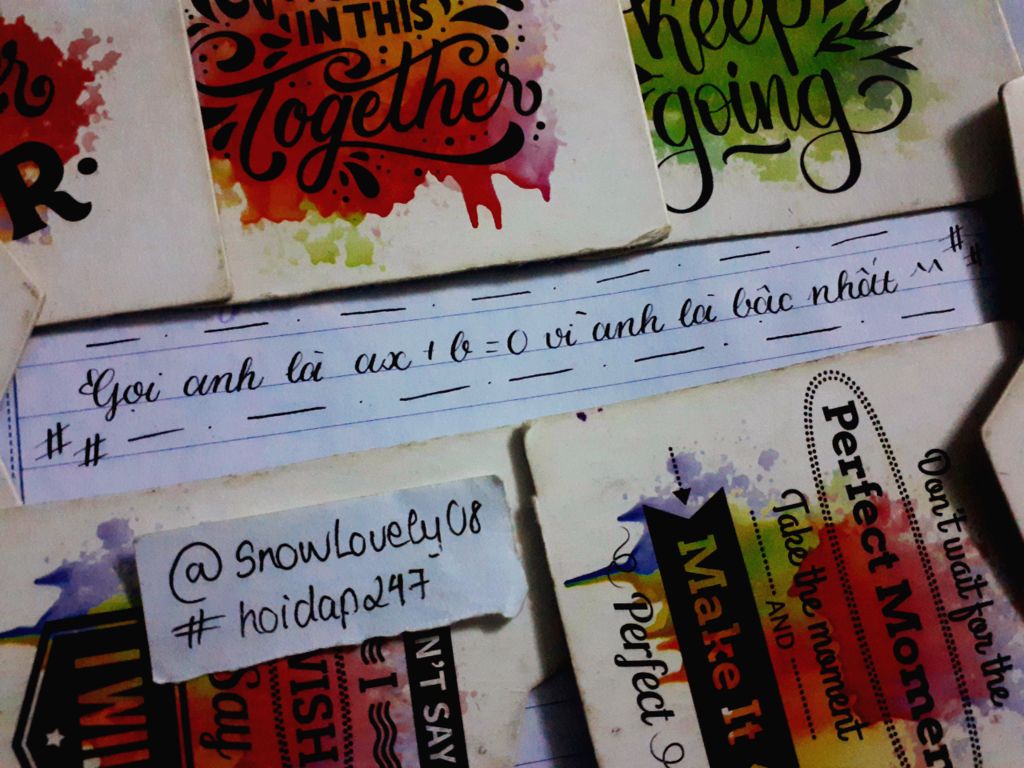 IN THIS
Together
Keep
going
R.
Gọi anh là ax + b = 0 vì anh là bậc nhất ^^
@SnowLovely08
#hoidap247
Don't wait for the
Perfect Momen
Take the moment
AND
Make It
Perfect
I WIL
Say
WISH
I
N'T SAY